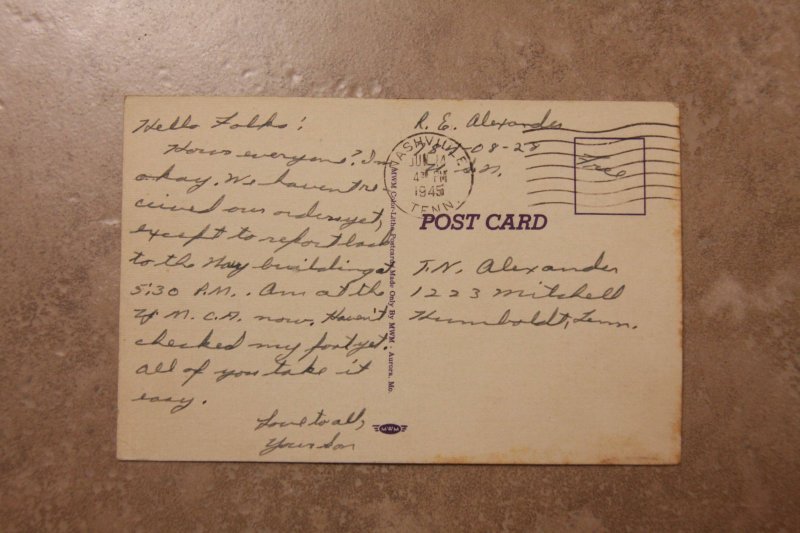 Hello Folks!
Hows everyone? I'm
okay. We haven't re-
ceived our orders yet,
except to report back
to the Navy building at
5:30 P.M.. Am at the
Y.M.C.A. now. Haven't
checked my port yet.
All of you take it
easy.
Love to all,
Your Son
MWM Color-Litho Postcards Made Only By MWM - Aurora, Mo.
MWM
R. E. Alexander
08-28
S.N.
NASHVILLE
JUN 14
4 PM
1945
TENN.
Free
POST CARD
T. N. Alexander
1223 Mitchell
Humboldt, Tenn.